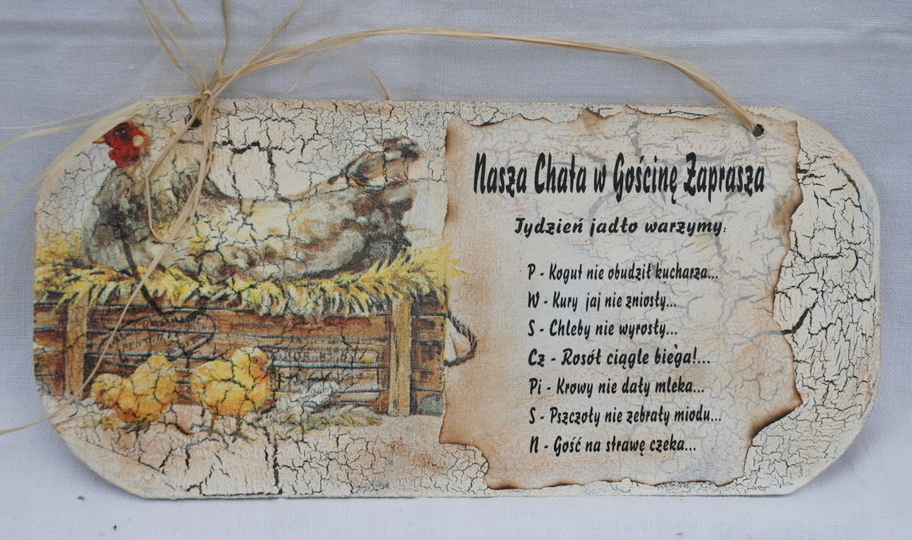 Nasza Chata w Gościnę Zaprasza
Tydzień jadło warzymy:
P - Kogut nie obudził kucharza...
W - Kury jaj nie zniosły...
S - Chleby nie wyrosły...
Cz - Rosół ciągle biega!...
Pi - Krowy nie dały mleka...
S - Pszczoły nie zebrały miodu...
N - Gość na strawę czeka...